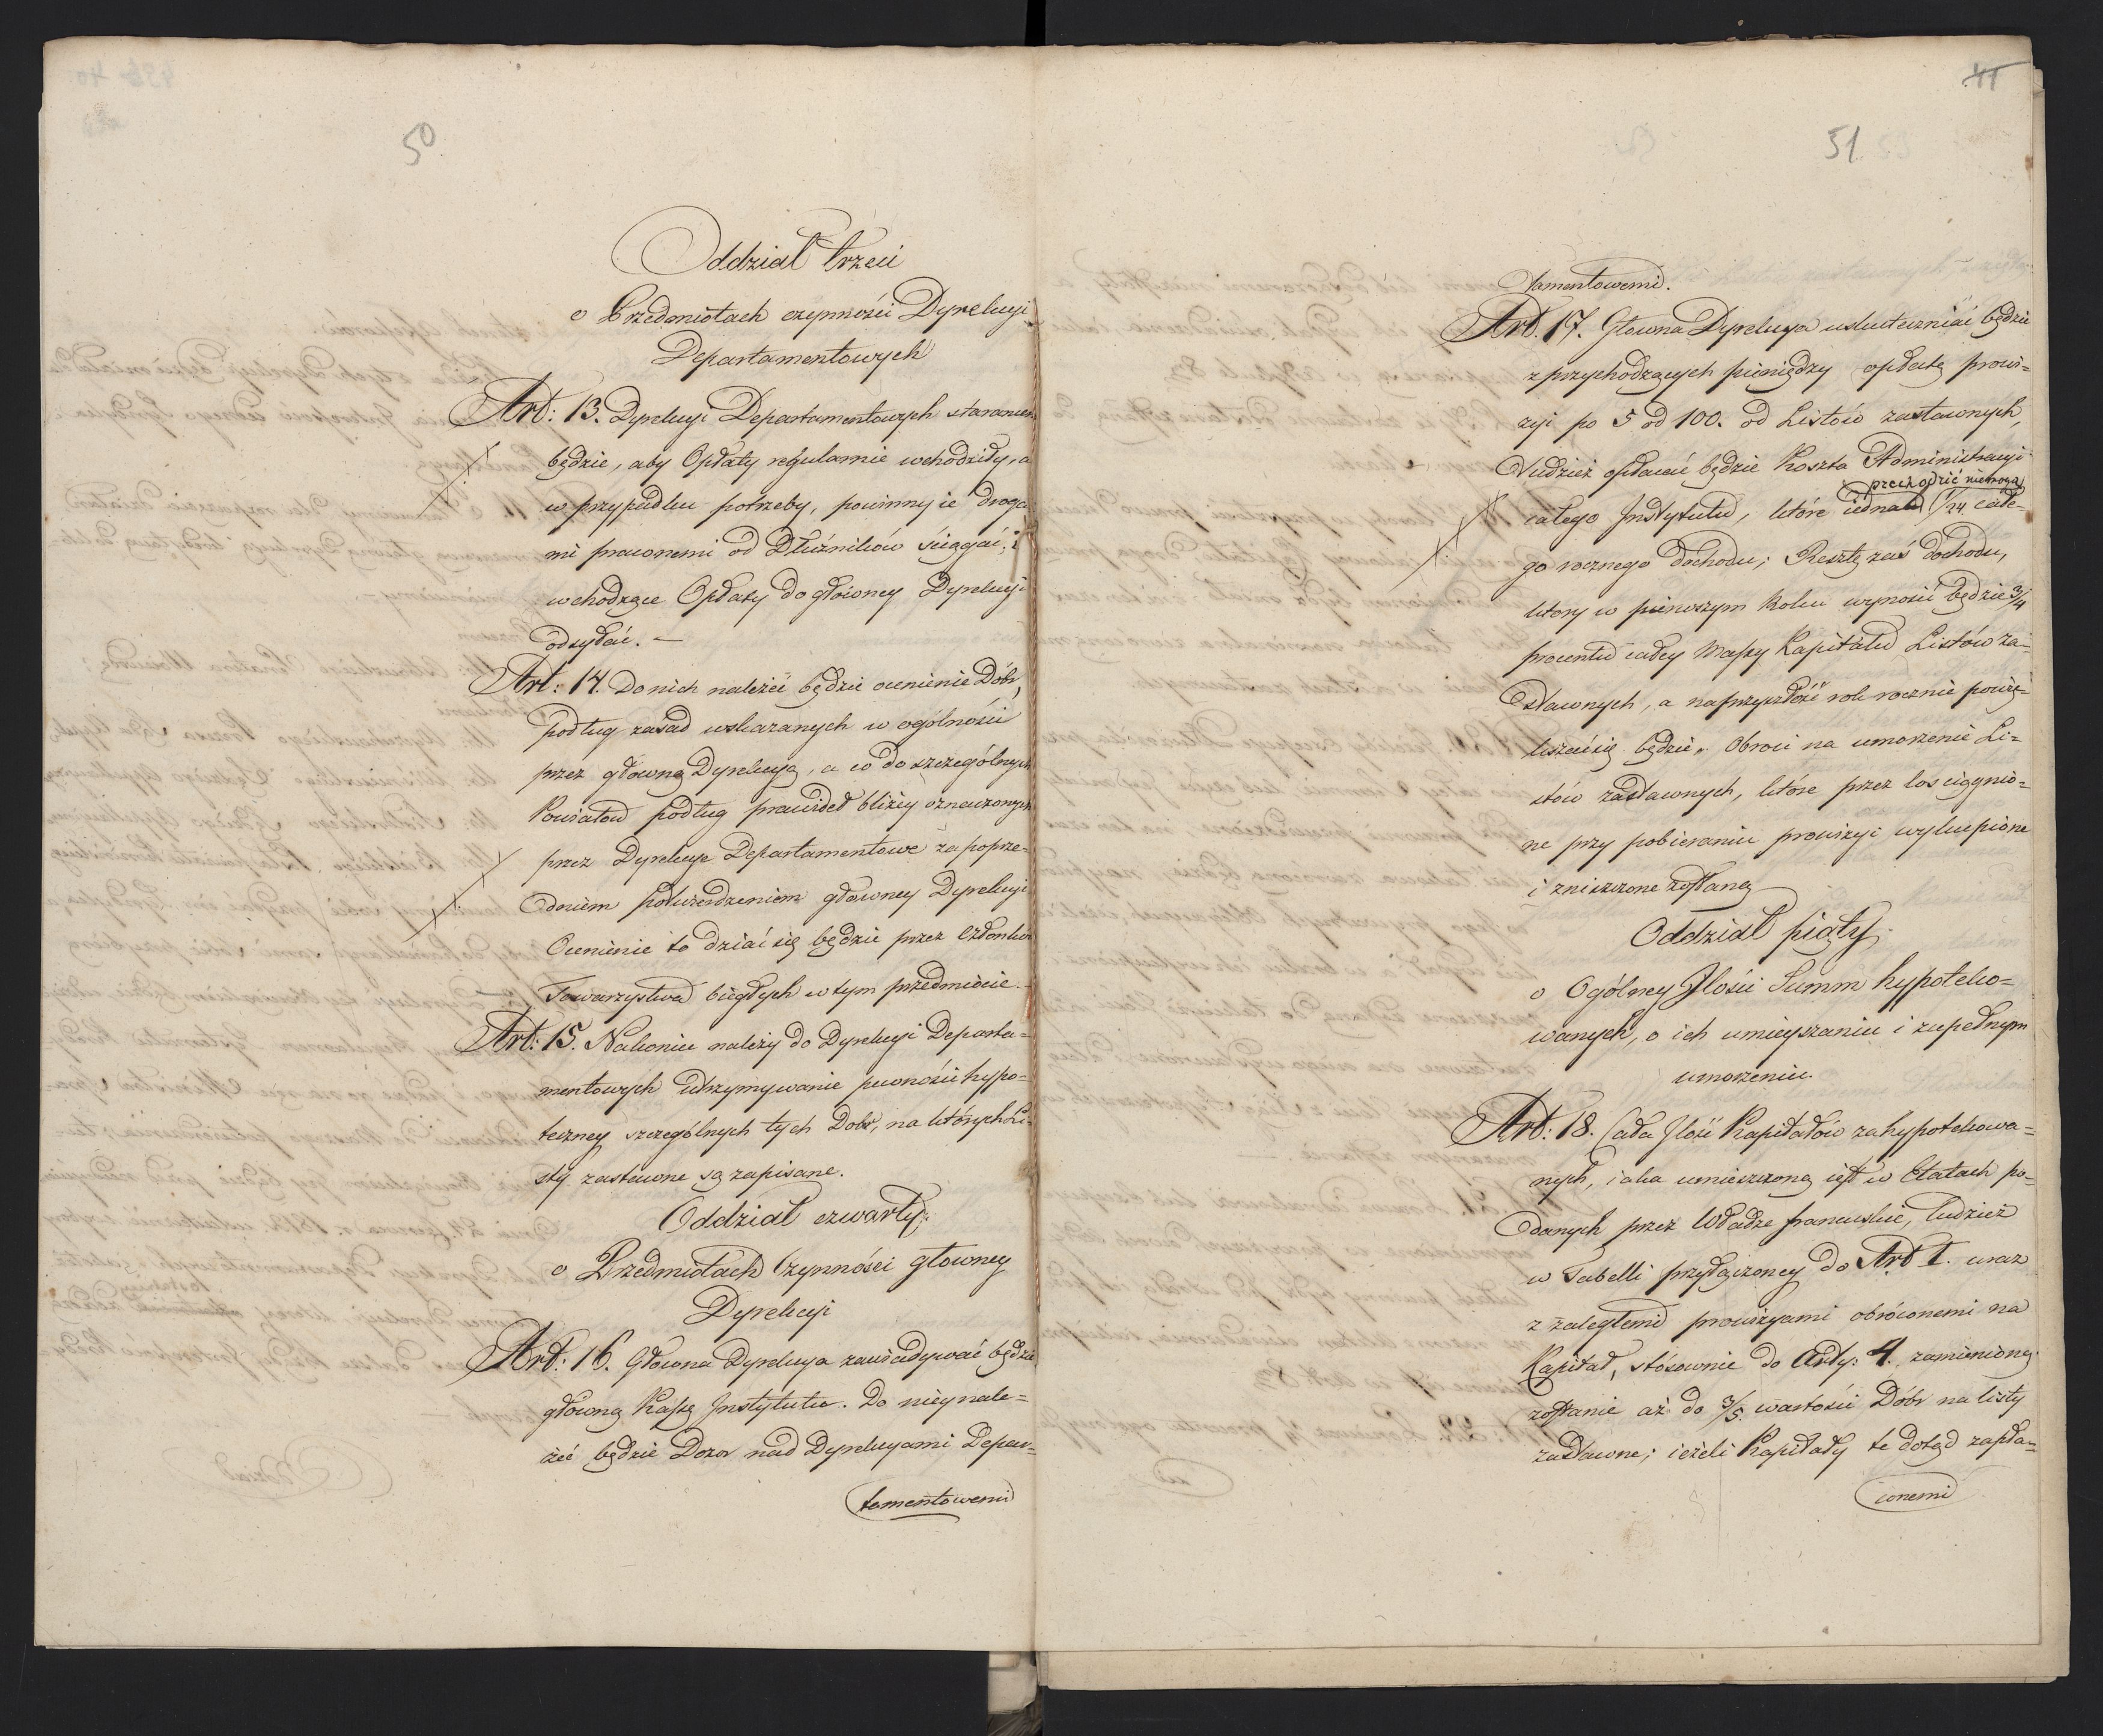 50
Oddział trzeci
o Przedmiotach czynności Dyrekcyi
Departamentowych
Art: 13. Dyrekcyi Departamentowych staraniem
będzie, aby Opłaty regularnie wchodziły, a
w przypadku potrzeby, powinny ie droga
mi prawnemi od Dłużników ściągać, i
wchodzące Opłaty do główney Dyrekcyi
odsyłać. —
Art: 14. Do nich należeć będzie ocenienie Dóbr,
podług zasad wskazanych w ogólności
przez główną Dyrekcyą, a co do szczególnych
Powiatów podług prawideł bliżey oznaczonych
przez Dyrekcye Departamentowe za poprze-
dniem potwierdzeniem główney Dyrekcyi
Ocenienie to dziać się będzie przez Członków
Towarzystwa biegłych w tym przedmiocie.
Art: 15. Nakoniec należy do Dyrekcyi Departa-
mentowych utrzymywanie pewności hypo-
teczney szczególnych tych Dobr, na których Li-
sty zastawne są zapisane.
Oddział czwarty.
o Przedmiotach Czynności główney
Dyrekcyi
Art: 16. Główna Dyrekcya zawiadywać będzie
główną Kassą Instytutu. Do niey nale=
żeć będzie Dozor nad Dyrekcyami Depar=
tamentowemi
41
51
tamentowemi.
Art. 17. Głowna Dyrekcya uskuteczniać będzie
z przychodzących pieniędzy opłatę prowi=
zyi po 5 od 100. od Listów zastawnych,
Tudzież opłacać będzie Koszta Administracyi
przechodzić niemogą
całego Instytutu, które iednak 1/24 całe-
go rocznego dochodu; Resztę zaś dochodu,
ktory w pierwszym Roku wynosić będzie 3/4
procentu całey Massy Kapitału Listów za-
stawnych, a naprzyszłość rok rocznie powię=
kszać się będzie, obroci na umorzenie Li=
stów zastawnych, które przez los ciągnio=
ne przy pobieraniu prowizyi wykupione
i zniszczone zostaną
Oddział piąty.
o Ogólney Ilości Summ hypoteko=
wanych, o ich umieyszaniu i zupełnym
umorzeniu.
Art: 18. Cała Ilość Kapitałów zahypotekowa=
nych, iaka umieszczoną iest w Etatach po=
danych przez Władze francuskie, tudzież
w Tabelli przyłączoney do Art 1. wraz
z zaległemi prowizyami obróconemi na
Kapitał, stósownie do Arty: 4. zamienioną
zostanie aż do 3/5 wartości Dóbr na listy
zastawne; ieżeli Kapitały te dotąd zapła=
conemi